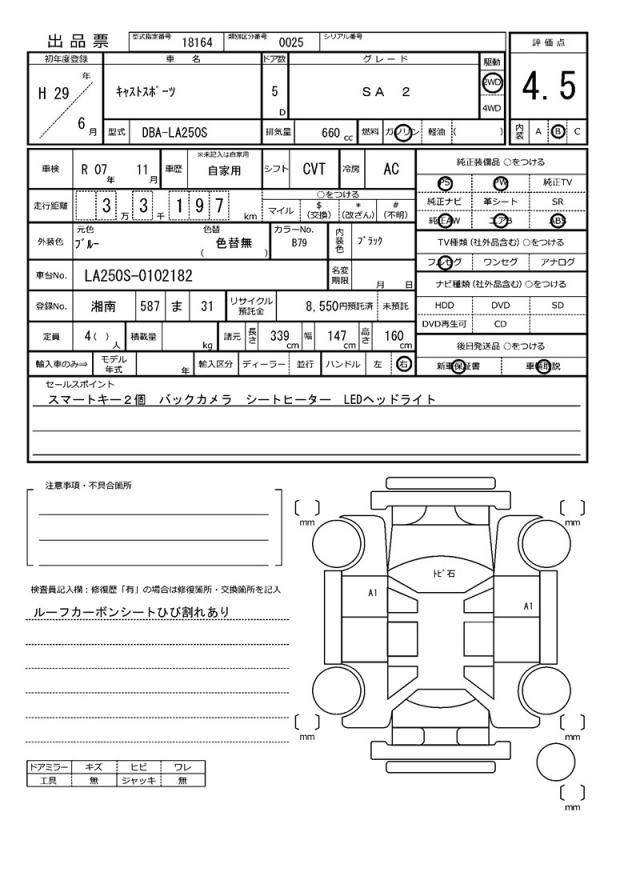 出品票 型式指定番号 18164 類別区分番号 0025 シリアル番号
評価点
4.5
内装 A B C
初年度登録 車名 ドア数 グレード 駆動
H 29 年 6 月 キャストスポーツ 5 D SA 2 2WD 4WD
型式 DBA-LA250S 排気量 660 cc 燃料 ガソリン 軽油 ( )
車検 R 07 年 11 月 車歴 ※未記入は自家用 自家用 シフト CVT 冷房 AC
走行距離 3 万 3 千 1 9 7 km ○をつける
マイル $ (交換) * (改ざん) # (不明)
外装色 元色 ブルー 色替 ( 色替無 ) カラーNo. B79 内装色 ブラック
車台No. LA250S-0102182 名変期限 月 日
登録No. 湘南 587 ま 31 リサイクル預託金 8,550円預託済 未預託
定員 4( ) 人 積載量 kg 諸元 長さ 339 cm 幅 147 cm 高さ 160 cm
輸入車のみ⇒ モデル年式 年 輸入区分 ディーラー 並行 ハンドル 左 右
純正装備品 ○をつける
PS PW 純正TV
純正ナビ 革シート SR
純正AW エアB ABS
TV種類 (社外品含む) ○をつける
フルセグ ワンセグ アナログ
ナビ種類 (社外品含む) ○をつける
HDD DVD SD
DVD再生可 CD
後日発送品 ○をつける
新車保証書 車輌取説
セールスポイント
スマートキー2個 バックカメラ シートヒーター LEDヘッドライト
注意事項・不具合箇所
検査員記入欄：修復歴「有」の場合は修復箇所・交換箇所を記入
ルーフカーボンシートひび割れあり
ドアミラー キズ ヒビ ワレ
工具 無 ジャッキ 無
[ ] mm [ ] mm
トビ石
A1 A1
[ ] mm [ ] mm
[ ] mm